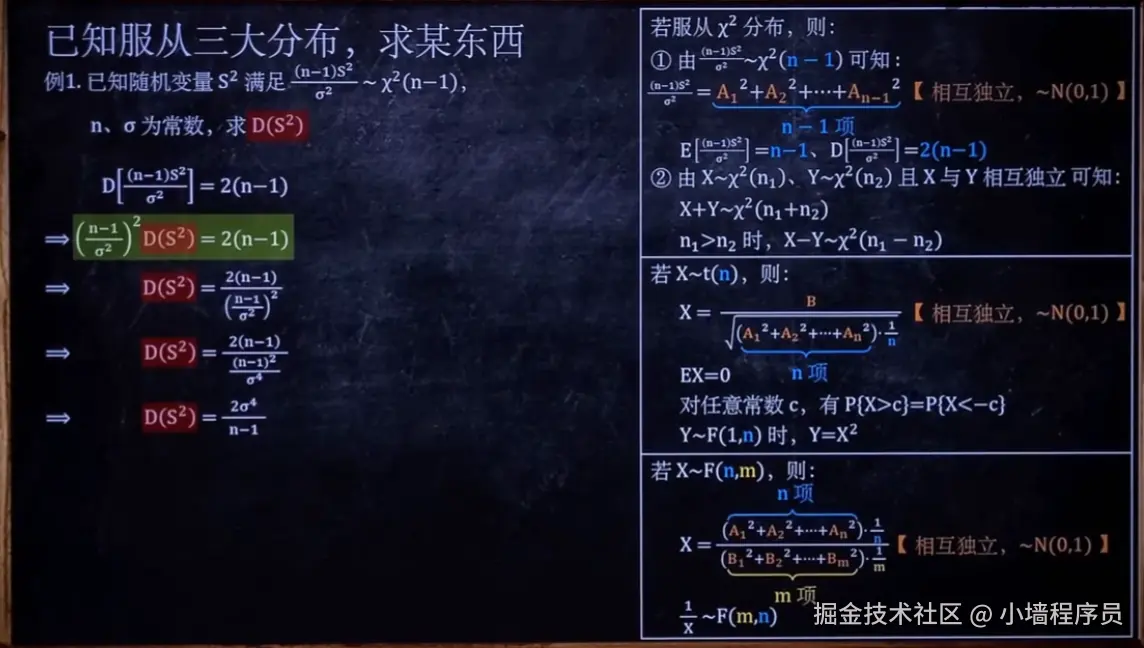 已知服从三大分布，求某东西
例1. 已知随机变量 S² 满足 (n−1)S²/σ² ~ χ²(n−1)，
n、σ 为常数，求 D(S²)
D[(n−1)S²/σ²] = 2(n−1)
⇒ ((n−1)/σ²)² D(S²) = 2(n−1)
⇒ D(S²) = 2(n−1)/((n−1)/σ²)²
⇒ D(S²) = 2(n−1)/((n−1)²/σ⁴)
⇒ D(S²) = 2σ⁴/(n−1)
若服从 χ² 分布，则：
① 由 (n−1)S²/σ² ~χ²(n − 1) 可知：
(n−1)S²/σ² = A₁²+A₂²+⋯+Aₙ₋₁² 【 相互独立，~N(0,1) 】
n − 1 项
E[(n−1)S²/σ²]=n−1、D[(n−1)S²/σ²]=2(n−1)
② 由 X~χ²(n₁)、Y~χ²(n₂) 且 X 与 Y 相互独立 可知：
X+Y~χ²(n₁+n₂)
n₁>n₂ 时，X−Y~χ²(n₁ − n₂)
若 X~t(n)，则：
X = B/√((A₁²+A₂²+⋯+Aₙ²)·1/n) 【 相互独立，~N(0,1) 】
n 项
EX=0
对任意常数 c，有 P{X>c}=P{X<−c}
Y~F(1,n) 时，Y=X²
若 X~F(n,m)，则：
n 项
X = (A₁²+A₂²+⋯+Aₙ²)·1/n / (B₁²+B₂²+⋯+Bₘ²)·1/m 【 相互独立，~N(0,1) 】
m 项
1/X ~F(m,n)
掘金技术社区 @ 小墙程序员